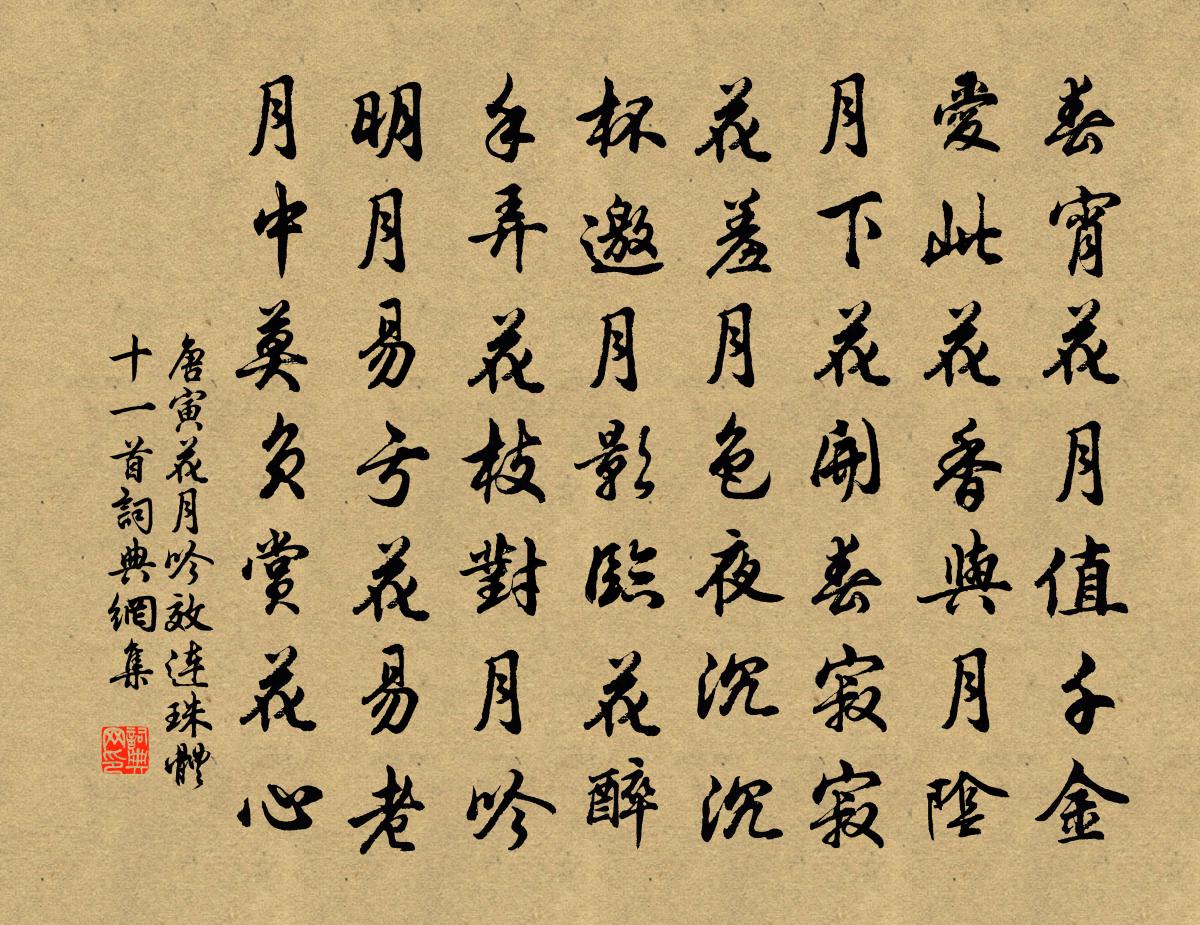 春宵花月值千金
愛此花香與月陰
月下花開春寂寂
花羞月色夜沉沉
杯邀月影臨花醉
手弄花枝對月吟
明月易亏花易老
月中莫負賞花心
唐寅花月吟效连珠體
十一首詞典網集
詞典网印